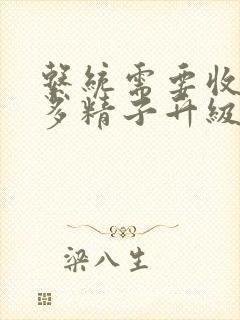 系統需要收
多精子升級
梁八生